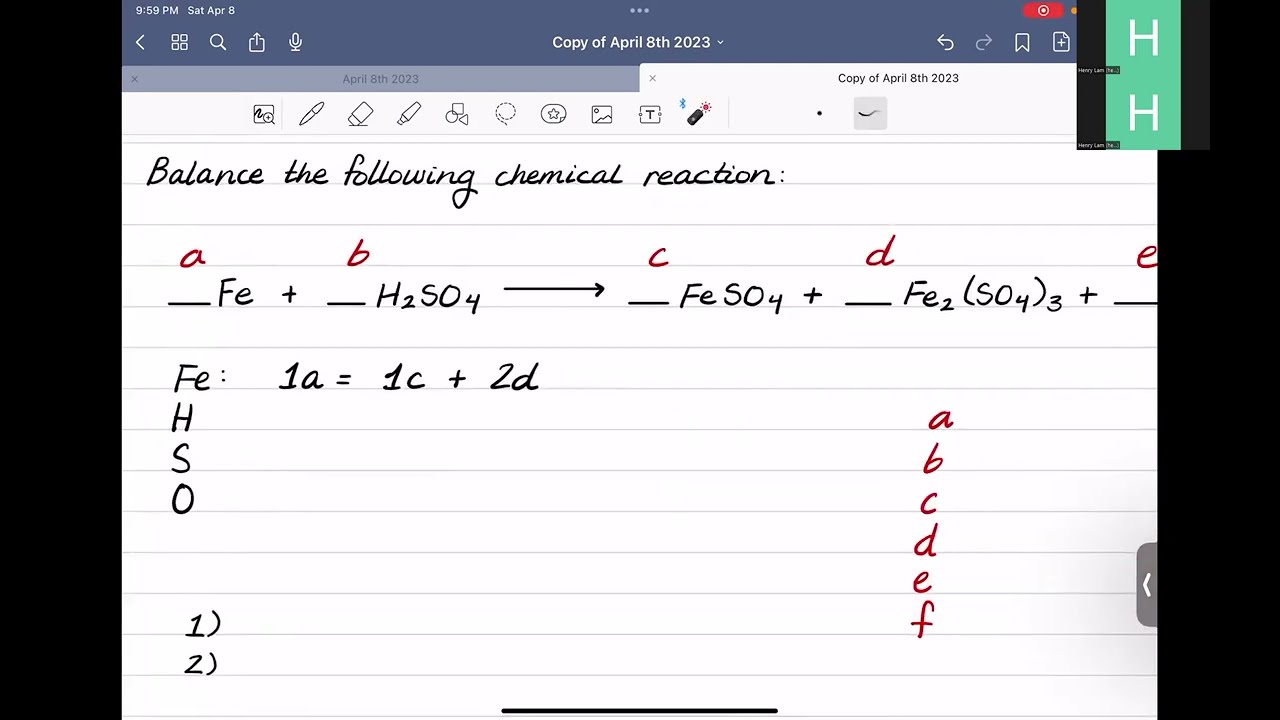 9:59 PM Sat Apr 8
Copy of April 8th 2023
April 8th 2023
Copy of April 8th 2023
H
Henry Lam (he...)
H
Henry Lam (he...)
T
Balance the following chemical reaction:
a b c d e
__Fe + __ H₂SO₄ ⟶ __ FeSO₄ + __ Fe₂(SO₄)₃ + __
Fe: 1a = 1c + 2d
H
a
S
b
O
c
d
e
1) f
2)